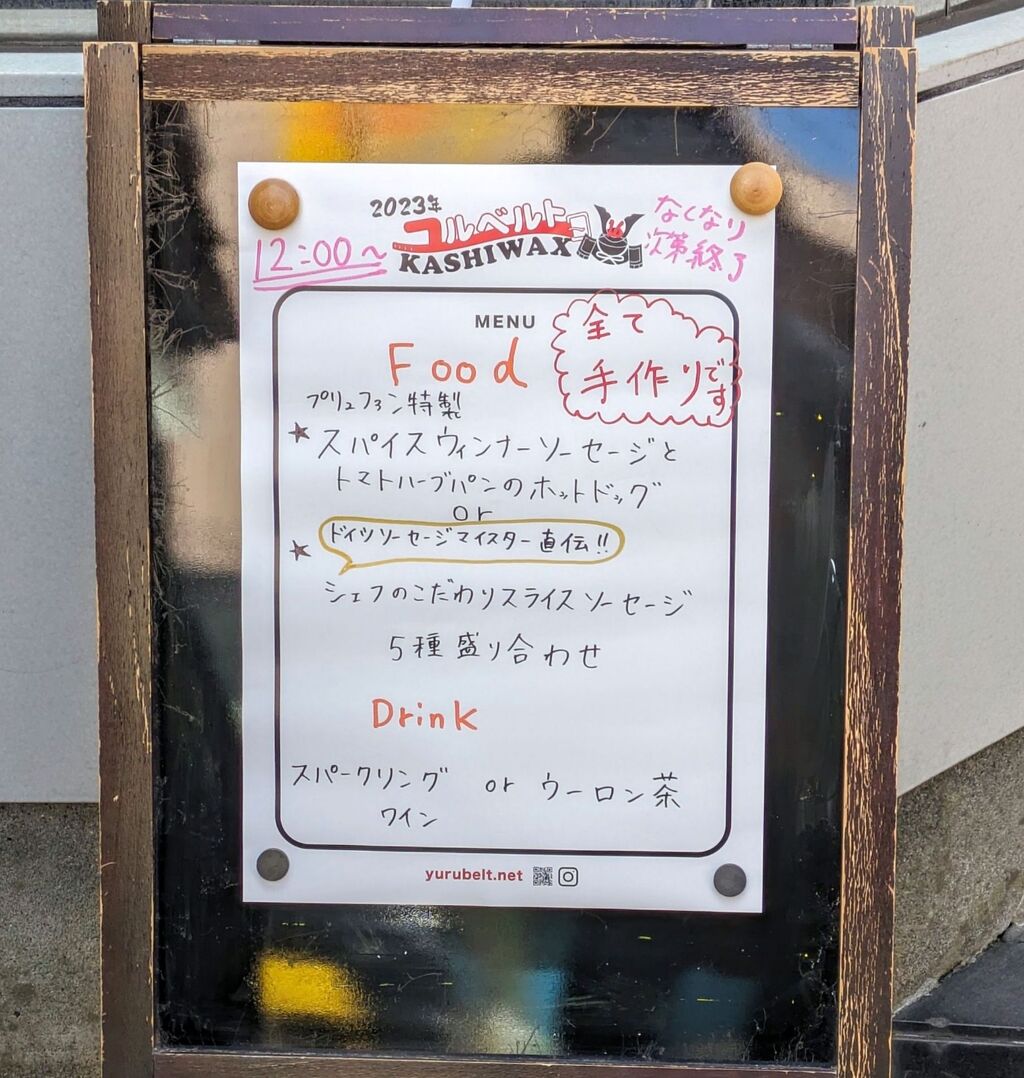 2023年
ユルベルトKASHIWAX
12:00〜
なくなり
次第終了
MENU
全て
手作りです
Food
プリュファン特製
★スパイスウィンナーソーセージと
トマトハーブパンのホットドッグ
or
★ドイツソーセージマイスター直伝!!
シェフのこだわりスライスソーセージ
5種盛り合わせ
Drink
スパークリング
ワイン
or ウーロン茶
yurubelt.net